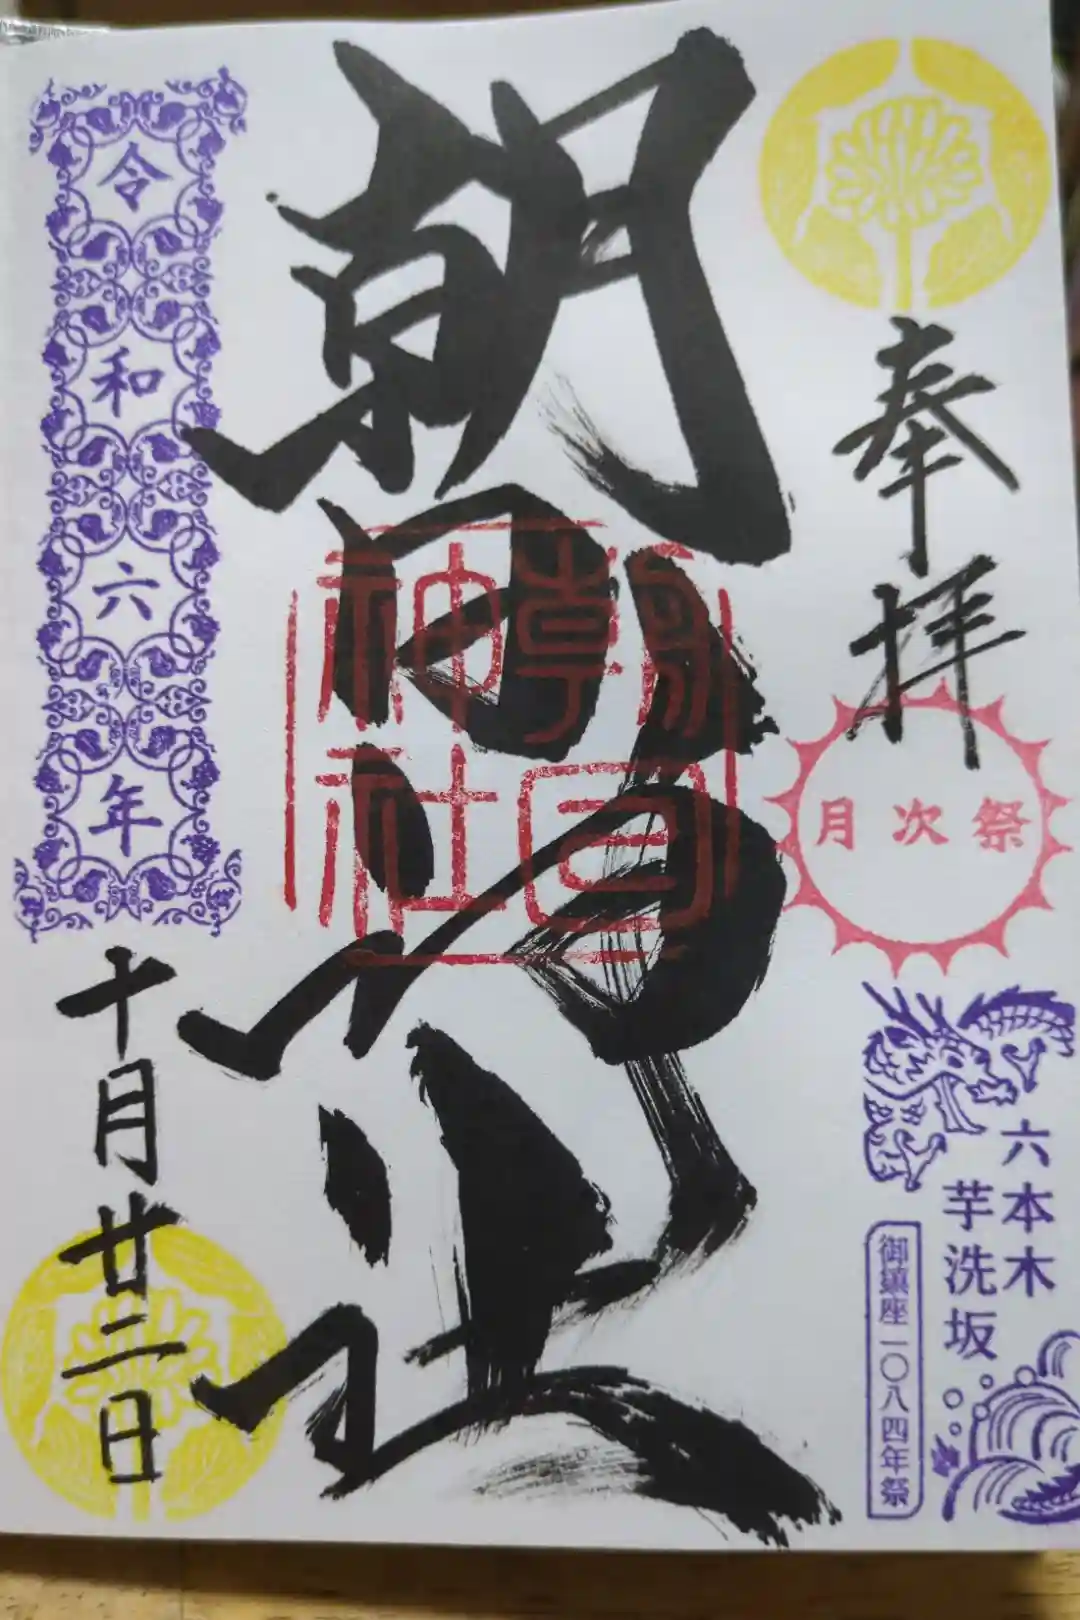 奉拝
月次祭
六本木
芋洗坂
御鎮座一〇八四年祭
朝日神社
朝日
神社
令和六年
十月廿二日